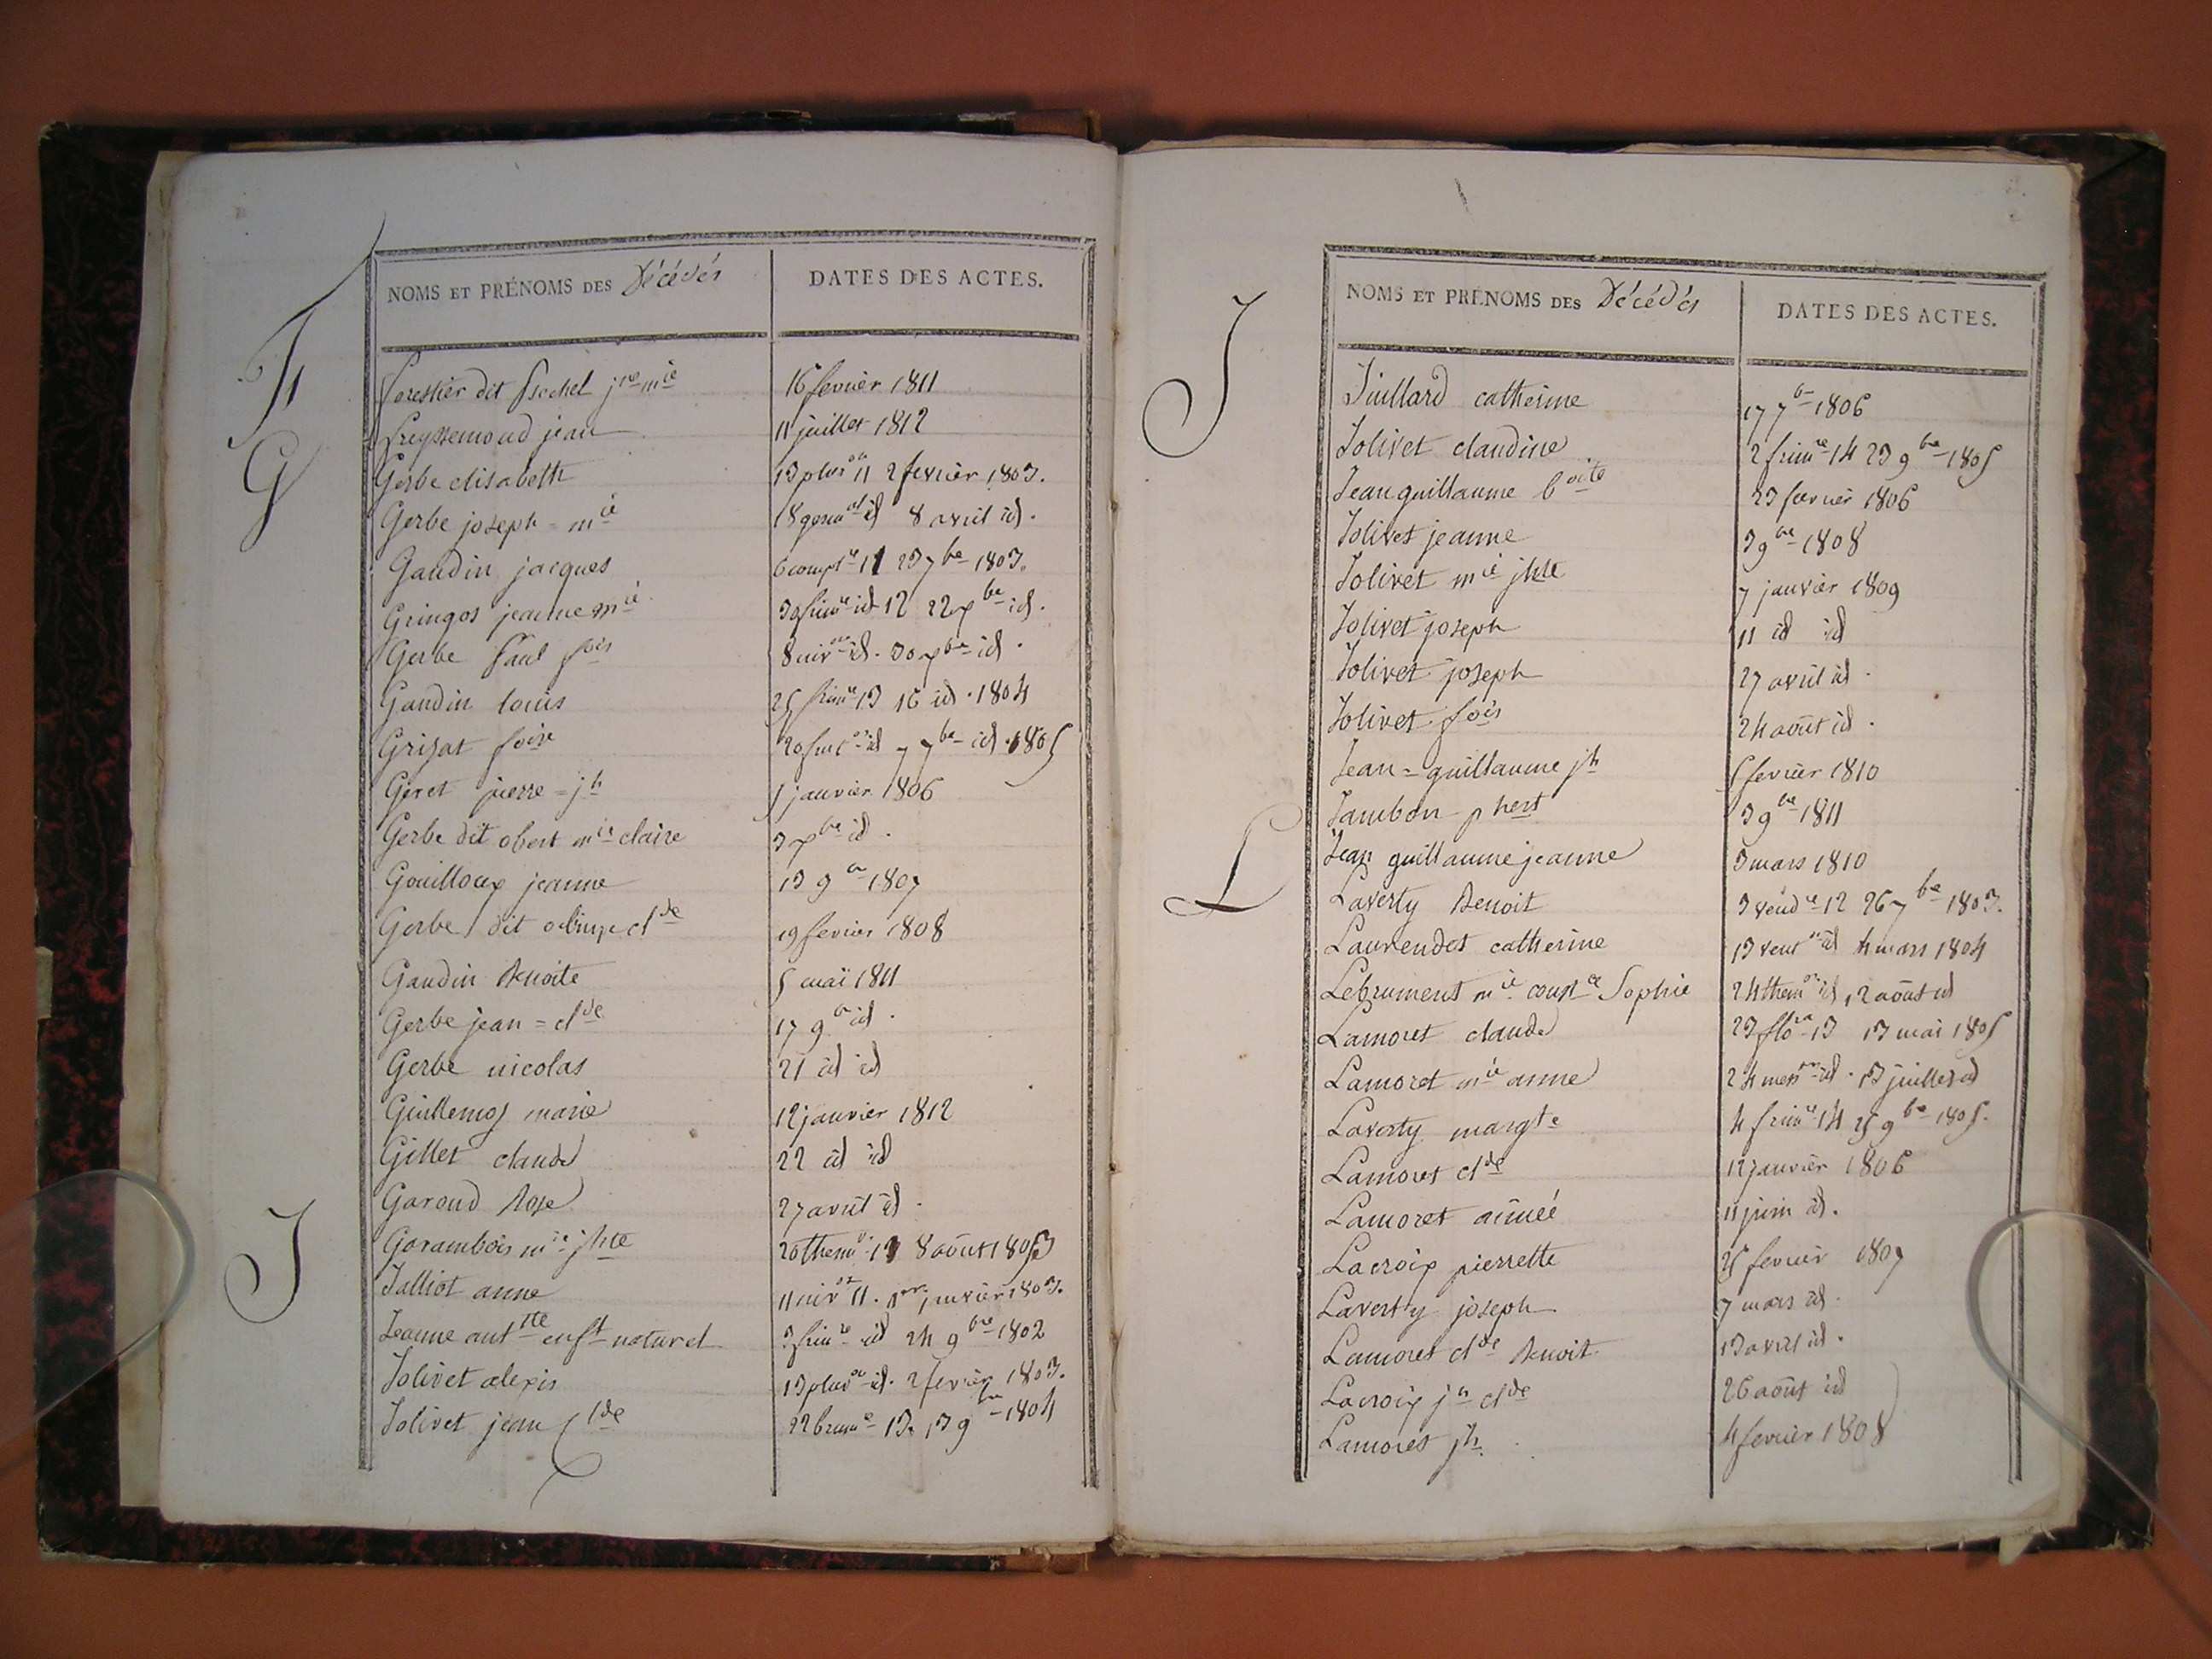 NOMS ET PRÉNOMS DES Décédés DATES DES ACTES.
F
forestier dit jne mie 16 fevrier 1811
freyssemoud jean 11 juillet 1812
G
Gerbe elisabeth 13 pluv 11 2 fevrier 1803.
Gerbe joseph = mie 18 germal id 8 avril id.
Gaudin jacques 6 complre 11 23 7bre 1803.
Gringos jeanne mie 30 frimre id 12 22 xbre id.
Gerbe Paul fois 8 niv id. 30 xbre id.
Gaudin louis 25 frimre 13 16 id. 1804
Grisat foise 20 fruct id 7 7bre id. 1805
Geret pierre = jh 1 janvier 1806
Gerbe dit obert mie claire 3 xbre id.
Gouilloux jeanne 13 9bre 1807
Gerbe dit clde 19 fevrier 1808
Gaudin Benoite 5 mai 1811
Gerbe jean = clde 17 9bre id.
Gerbe nicolas 21 id id
Guillemos marie 12 janvier 1812
Gillet claude 22 id id
Garoud Rose 27 avril id.
Garambois mie jhte 20 therm 13 8 août 1805
J
Jalliot anne 11 niv 11. 1er janvier 1803.
Jeanne antte enft naturel 3 frimre id 24 9bre 1802
Jolivet alexis 13 pluv id. 2 fevrier 1803.
Jolivet jean Clde 22 brumre 13. 13 9bre 1804
NOMS ET PRÉNOMS DES Décédés DATES DES ACTES.
J
Juillard catherine 17 7bre 1806
Jolivet claudine 2 frimre 14 23 9bre 1805
Jean guillaume boite 23 fevrier 1806
Jolivet jeanne 3 9bre 1808
Jolivet mie jhte 7 janvier 1809
Jolivet joseph 11 id id
Jolivet joseph 27 avril id.
Jolivet fois 24 août id.
Jean = guillaume jh 5 fevrier 1810
Jambon phert 3 9bre 1811
Jean guillaume jeanne 3 mars 1810
L
Laverty Benoit 3 vendre 12 26 7bre 1803.
Laurendet catherine 13 vent id 4 mars 1804
Lebrument mie const Sophie 24 therm id, 12 août id
Lamoret claude 23 flo 13 13 mai 1805
Lamoret mie anne 24 mess id. 13 juillet id
Laverty margte 4 frimre 14 25 9bre 1805.
Lamoret clde 12 janvier 1806
Lamoret aimée 11 juin id.
Lacroix pierrette 25 fevrier 1807
Laverty joseph 7 mars id.
Lamoret clde Benoit 13 avril id.
Lacroix jn clde 26 août id
Lamoret jh. 4 fevrier 1808